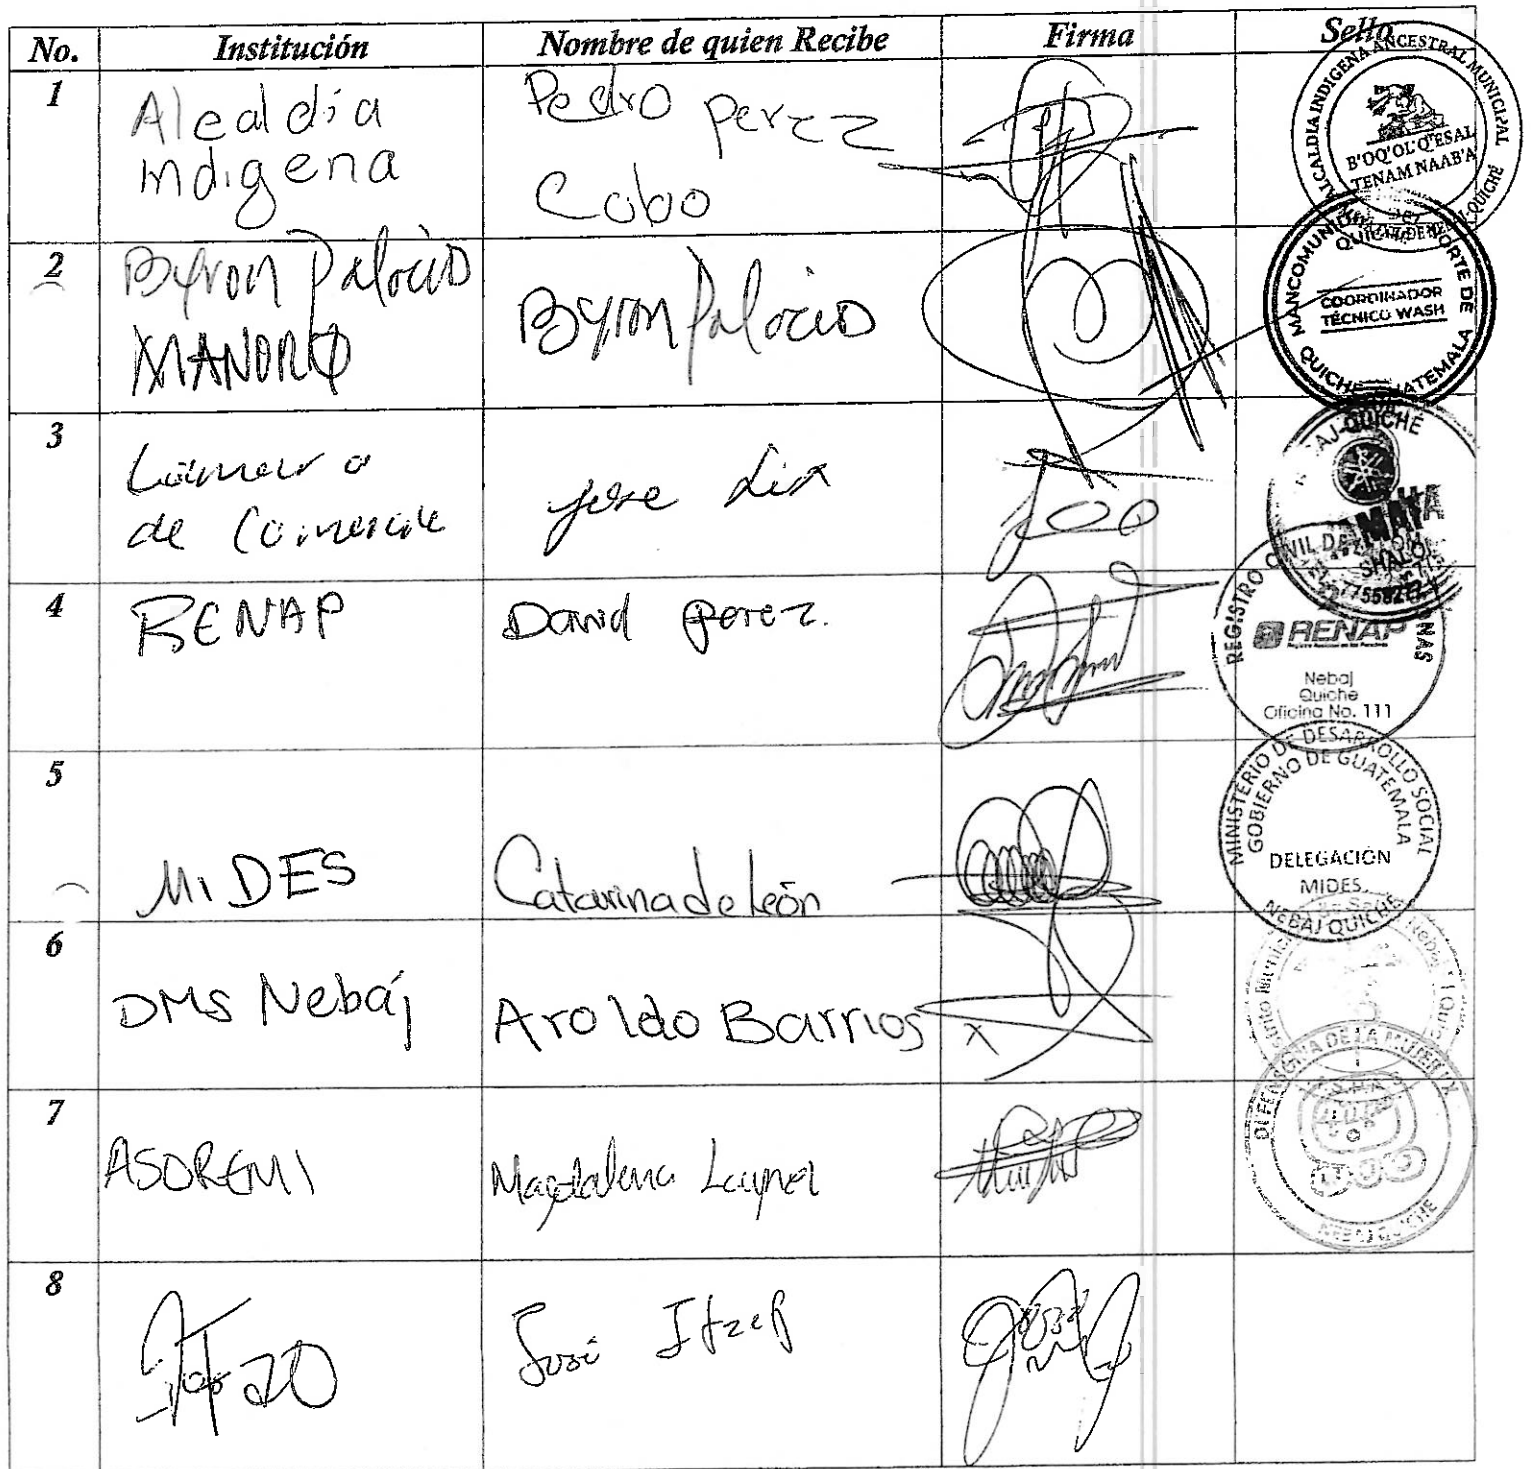 No. Institución Nombre de quien Recibe Firma Sello
1 Alcaldia Pedro perez
indigena Cobo
ALCALDIA INDIGENA ANCESTRAL MUNICIPAL
B'OQ'OL Q'ESAL
TENAM NAAB'A
2 Byron Palacios Byron Palacios
MANORQ
MANCOMUNIDAD DEL NORTE DE
QUICHE GUATEMALA
COORDINADOR
TÉCNICO WASH
3 Camara
de Comercio jose
AJ-QUICHÉ
MAYA
SHALO
4 RENAP David perez.
REGISTRO CIVIL DE LAS PERSONAS
RENAP
Nebaj
Quiche
Oficina No. 111
5
MIDES Catarina de León
MINISTERIO DE DESARROLLO SOCIAL
GOBIERNO DE GUATEMALA
DELEGACIÓN
MIDES
NEBAJ QUICHE
6
DMS Nebáj Aroldo Barrios
7
ASOREMI Magdalena Laynez
DEFENSORIA DE LA MUJER IX
NEBAJ QUICHE
8
José Itzep